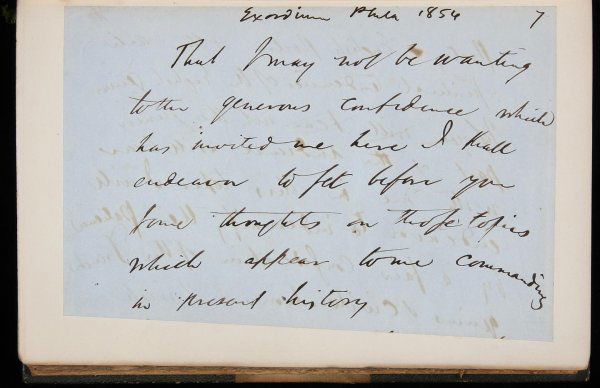 Exordium Phila 1854 7
That I may not be wanting
to the generous confidence which
has invited me here I shall
endeavor to set before you
some thoughts on those topics
which appear to me commanding
in present history